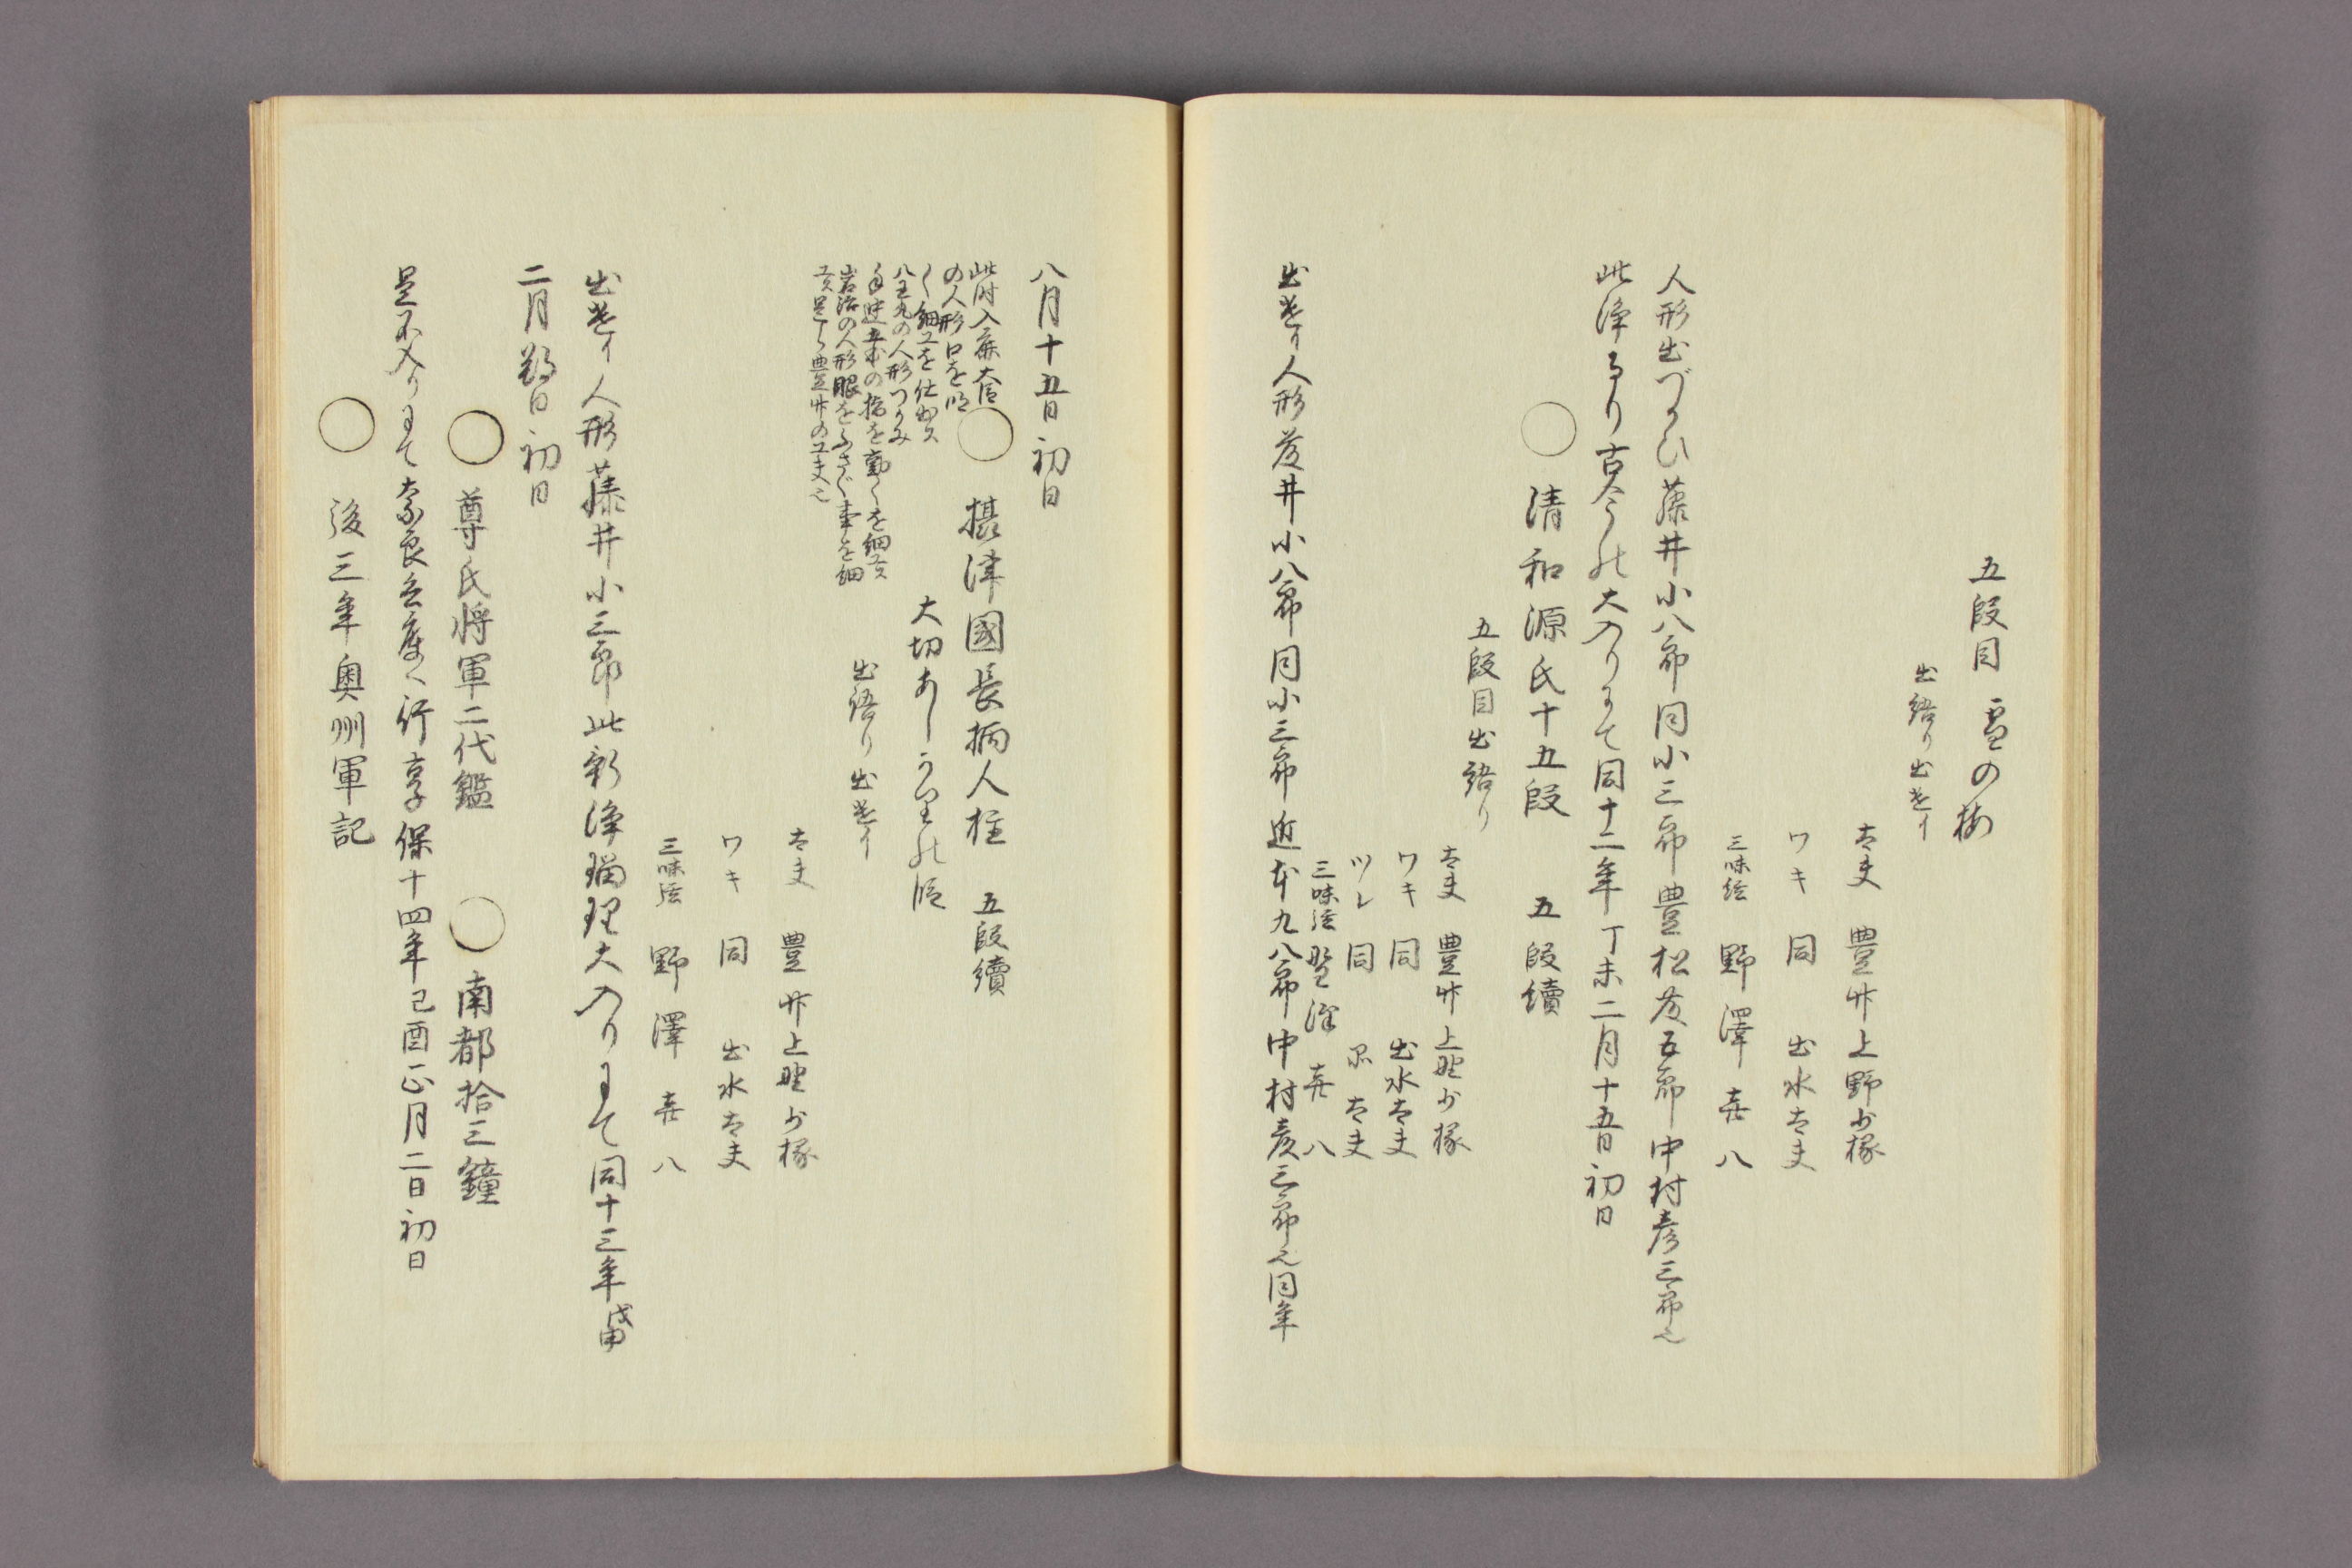 五段目 雪の梅
出語り出遣イ
太夫 豊竹上野少掾
ワキ 同 出水太夫
三味線 野澤喜八
人形出づかひ藤井小八郎同小三郎豊松藤五郎中村彦三郎也
此浄るり古今の大入りにて同十二年丁未二月十五日初日
○ 清和源氏十五段 五段續
五段目出語り
太夫 豊竹上野少掾
ワキ 同 出水太夫
ツレ 同 品太夫
三味線 野澤喜八
出遣イ人形藤井小八郎同小三郎近本九八郎中村彦三郎也同年
八月十五日初日
○ 攝津國長柄人柱 五段續
此時入鹿大臣
の人形口を明
く細工を仕出ス
八王丸の人形つかみ
手迚五本の指を動くを細工ス
岩治の人形眼をふさぐ事を細
工ス是より豊竹の工夫也
大切あしかりの段
出語り出遣イ
太夫 豊竹上野少掾
ワキ 同 出水太夫
三味線 野澤喜八
出遣イ人形藤井小三郎此新浄瑠理大入りにて同十三年戊申
二月朔日初日
○ 尊氏將軍二代鑑 ○ 南都拾三鐘
是不入りにて奈良兵庫へ行享保十四年己酉正月二日初日
○ 後三年奥州軍記